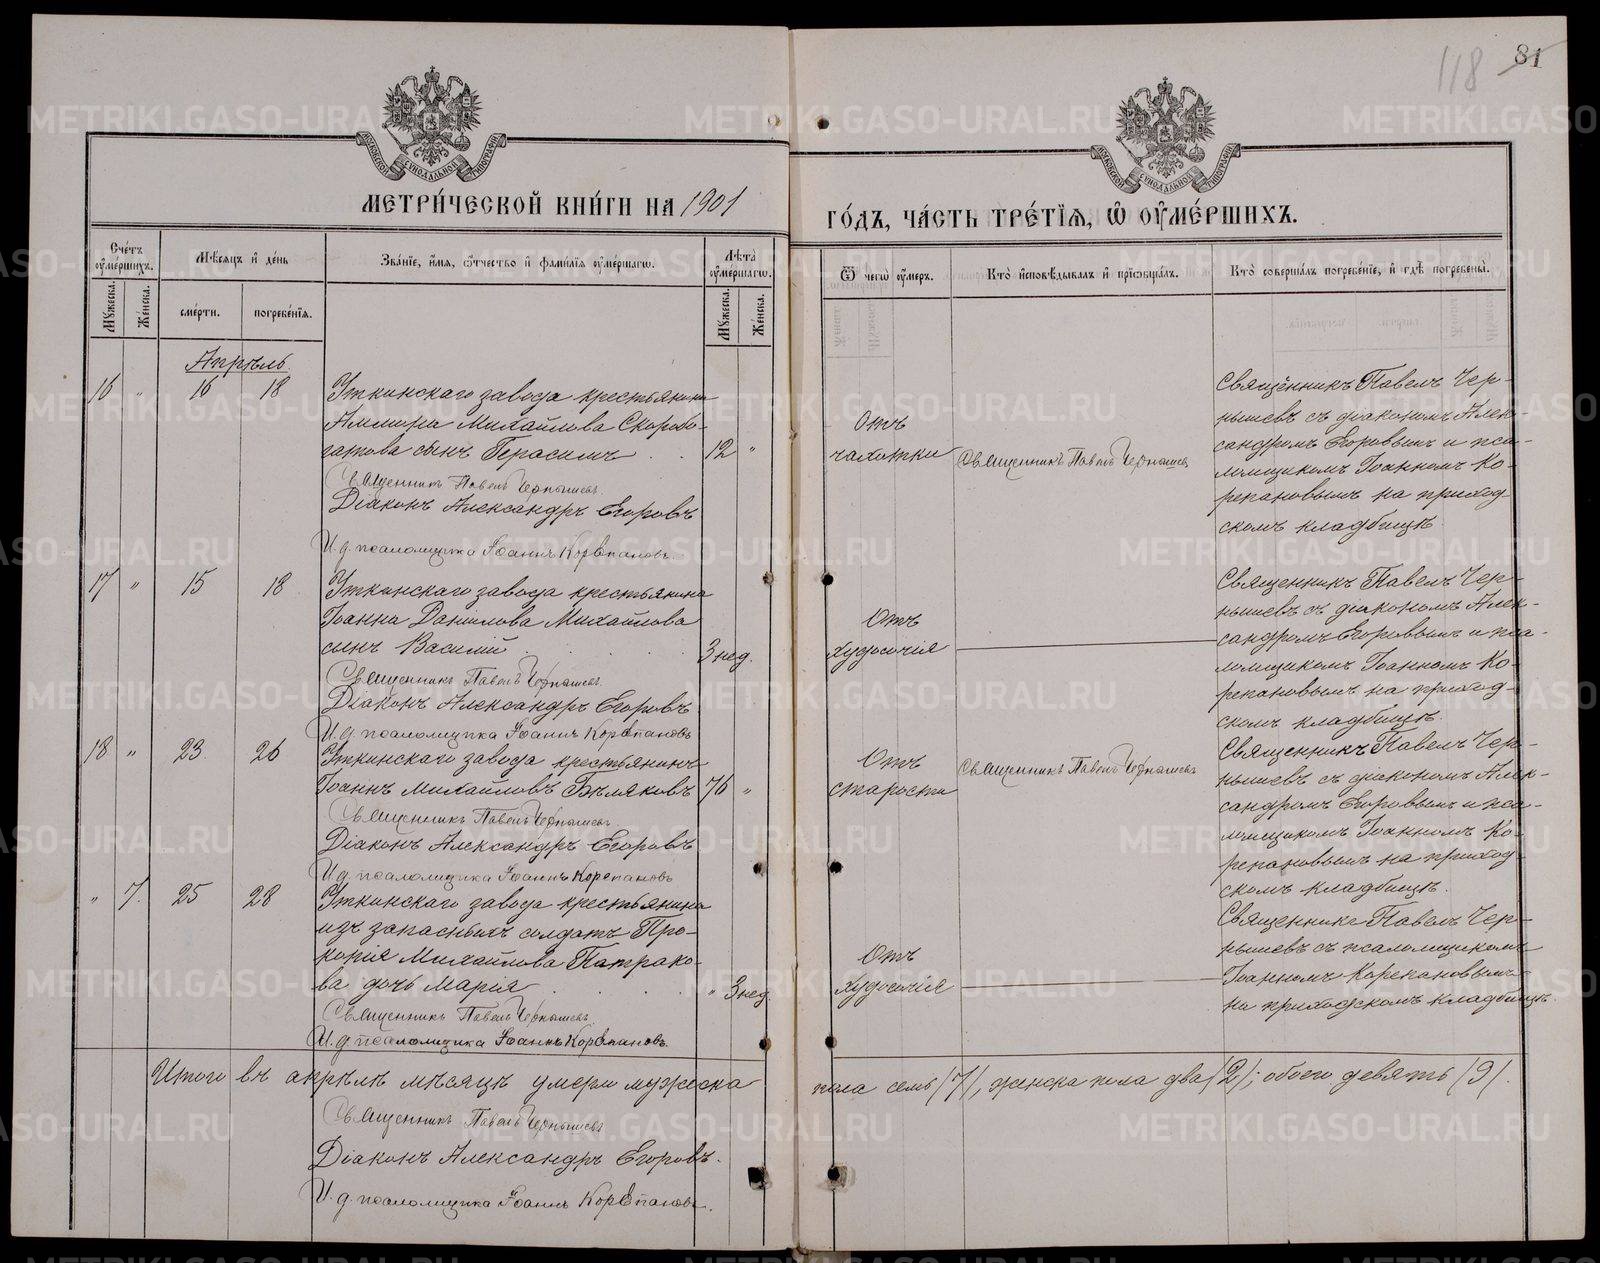 118 81
МЕТРИ́ЧЕСКОЙ КНИ́ГИ НА 1901
ГО́ДЪ, ЧА́СТЬ ТРЕ́ТІѦ, Ѡ҆ ОУ҆МЕ́РШИХЪ.
Сче́тъ оу҆ме́ршихъ.
Мѣ́сяцъ и҆ де́нь
Зва́нїе, и҆́мя, ѻ҆́тчество и҆ фами́лїя оу҆ме́ршагѡ.
Лѣ́та оу҆ме́ршагѡ.
Мꙋ́жеска.
Же́нска.
сме́рти.
погребе́нїя.
Мꙋ́жеска.
Же́нска.
Ѿ чегѡ̀ оу҆́меръ.
Кто̀ и҆сповѣ́дывалъ и҆ прїѡбща́лъ.
Кто̀ соверша́лъ погребе́нїе, и҆ гдѣ̀ погребены̀.
Апрѣль.
16 " 16 18
Уткинскаго завода крестьянина
Михайлова Скоробо-
гатова сынъ Герасимъ . . 12 "
Священникъ Павелъ Чернышевъ
Діаконъ Александръ Егоровъ
И. д. псаломщика Іоаннъ Корепановъ.
Отъ
чахотки
Священникъ Павелъ Чернышевъ
Священникъ Павелъ Чер-
нышевъ съ діакономъ Алек-
сандромъ Егоровымъ и пса-
ломщикомъ Іоанномъ Ко-
репановымъ на приход-
скомъ кладбищѣ.
17 " 15 18
Уткинскаго завода крестьянина
Іоанна Данилова Михайлова
сынъ Василій . . . . 3 нед.
Священникъ Павелъ Чернышевъ
Діаконъ Александръ Егоровъ
И. д. псаломщика Іоаннъ Корепановъ
Отъ
худосочія
Священникъ Павелъ Чер-
нышевъ съ діакономъ Алек-
сандромъ Егоровымъ и пса-
ломщикомъ Іоанномъ Ко-
репановымъ на приход-
скомъ кладбищѣ.
18 " 23 26
Уткинскаго завода крестьянинъ
Іоаннъ Михайловъ Бѣляковъ 76 "
Священникъ Павелъ Чернышевъ
Діаконъ Александръ Егоровъ
И д. псаломщика Іоаннъ Корепановъ
Отъ
старости
Священникъ Павелъ Чернышевъ
Священникъ Павелъ Чер-
нышевъ съ діакономъ Алек-
сандромъ Егоровымъ и пса-
ломщикомъ Іоанномъ Ко-
репановымъ на приход-
скомъ кладбищѣ.
" 7. 25 28
Уткинскаго завода крестьянина
изъ запасныхъ солдатъ Про-
копія Михайлова Патрако-
ва дочь Марія . . . . " 3 нед.
Священникъ Павелъ Чернышевъ
И. д. псаломщика Іоаннъ Корепановъ.
Отъ
худосочія
Священникъ Павелъ Чер-
нышевъ съ псаломщикомъ
Іоанномъ Корепановымъ
на приходскомъ кладбищѣ.
Итого въ апрѣлѣ мѣсяцѣ умерли мужеска
пола семь /7/, женска пола два /2/; обоего девять /9/.
Священникъ Павелъ Чернышевъ
Діаконъ Александръ Егоровъ.
И. д. псаломщика Іоаннъ Корепановъ.
METRIKI.GASO-URAL.RU